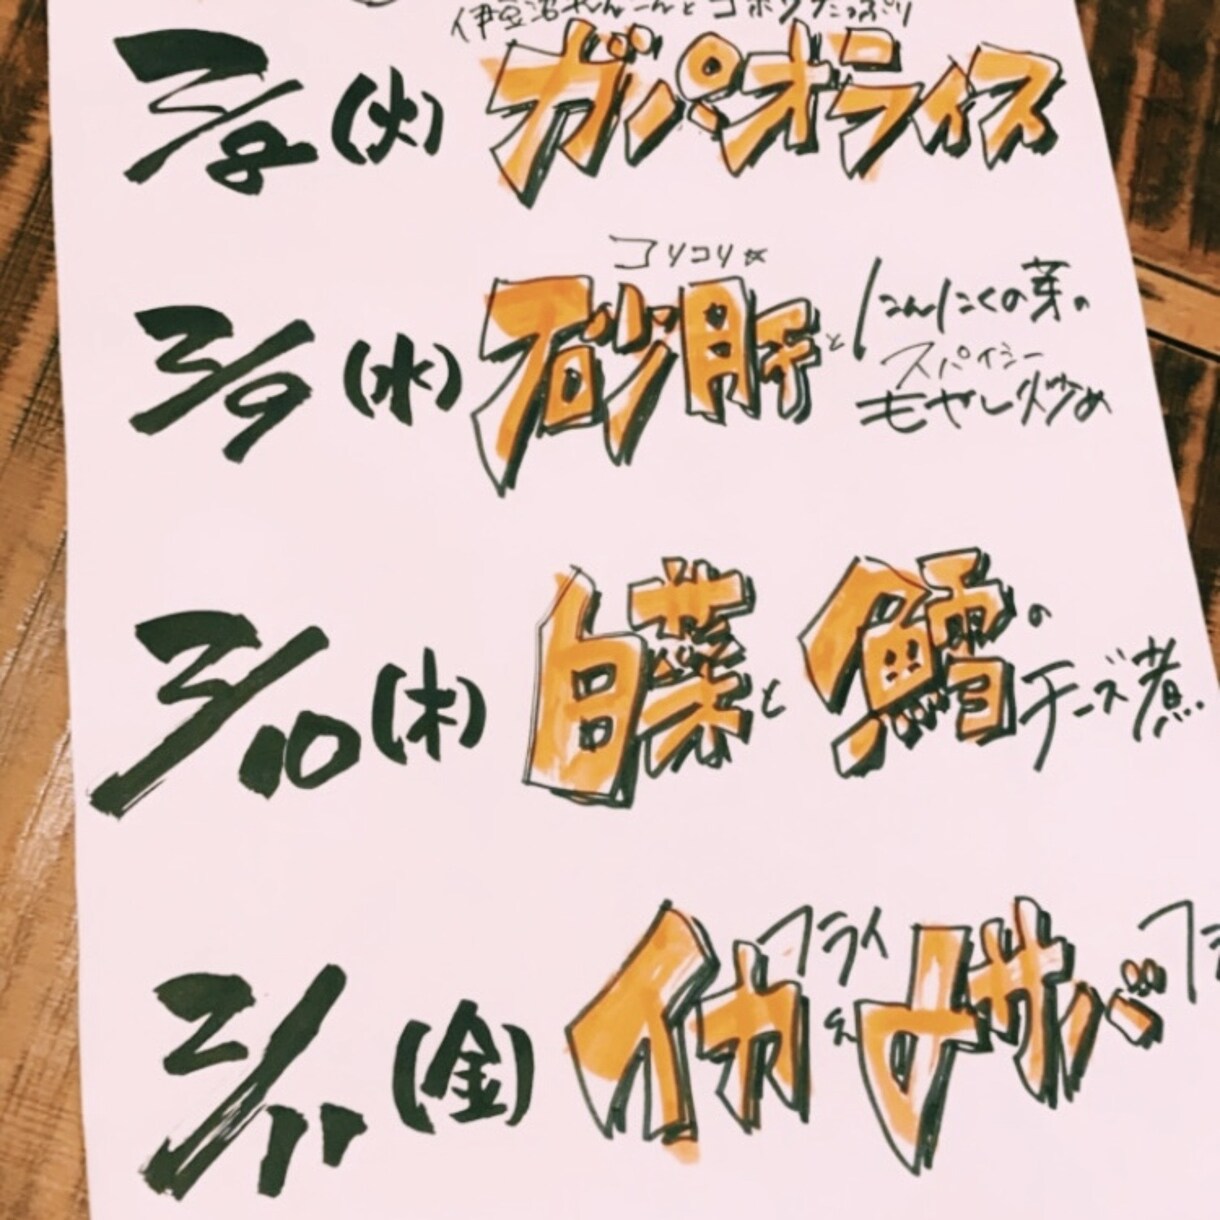 伊豆沼れんこんとゴボウたっぷり
2/8(火) ガパオライス
コリコリ☆
2/9(水) 砂肝とにんにくの芽の
スパイシー
もやし炒め
2/10(木) 白菜と鱈のチーズ煮
2/11(金) イカフライ サバフラ